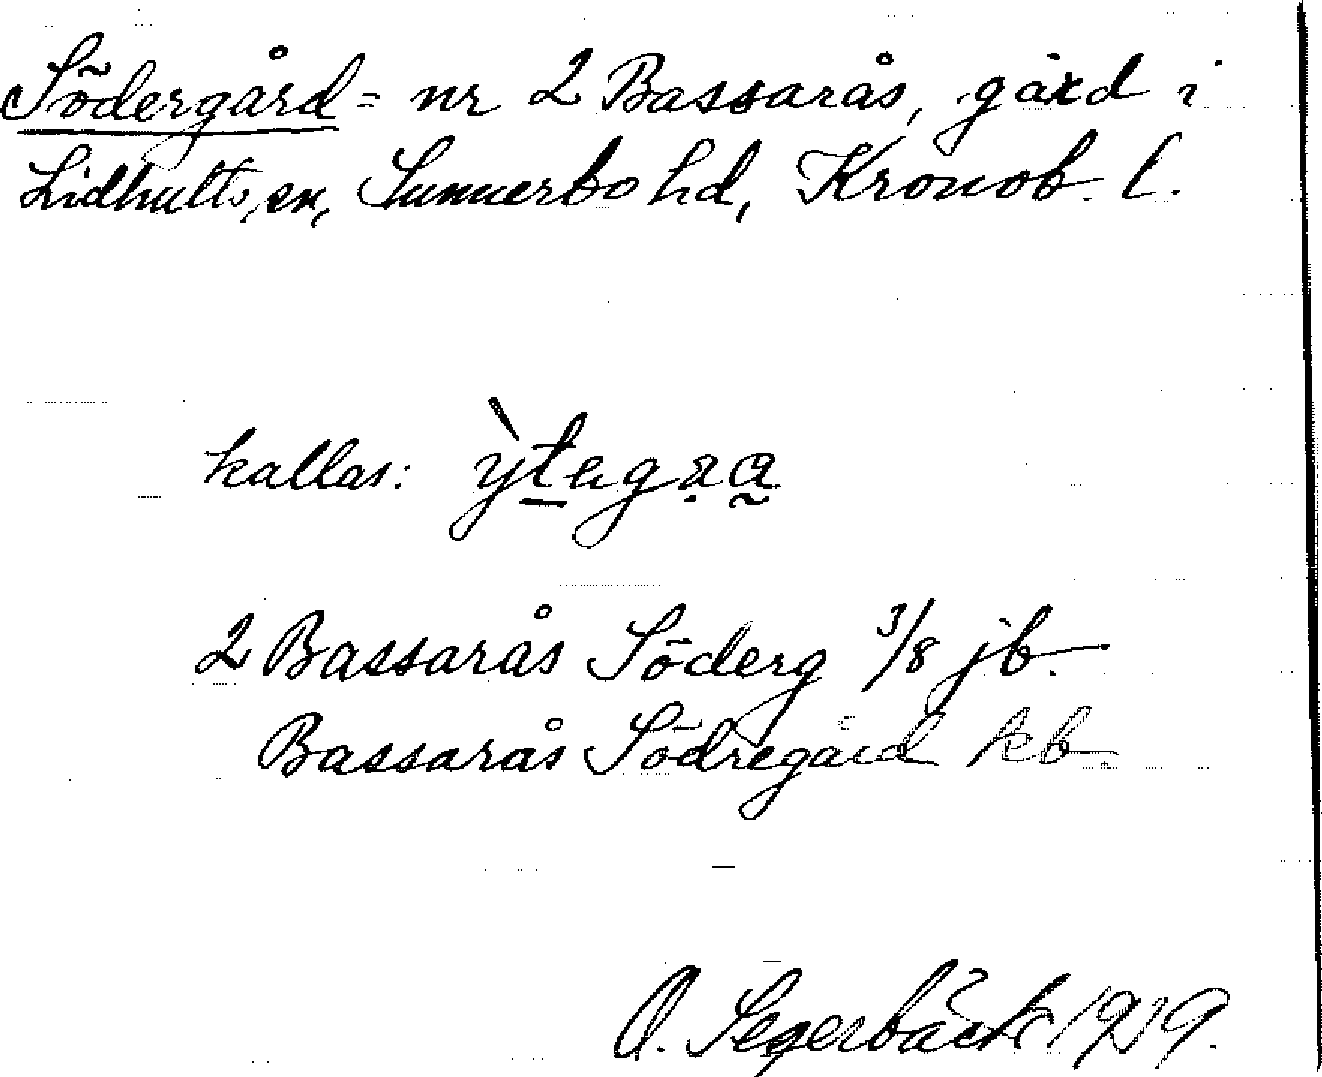 Södergård = nr 2 Bassarås, gård i
Lidhults sn, Sunnerbo hd, Kronob. l.
kallas:
2 Bassarås Söderg 3/8 jb.
Bassarås Södregård kb.
O. Segerbäck 1919.